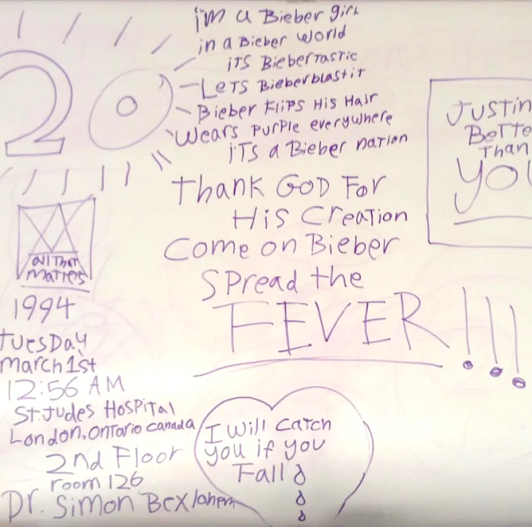 20
i'm a Bieber girl
in a Bieber world
iTS BieberTastic
LeTS Bieberblastit
Bieber Flips His Hair
Wears Purple everywhere
iTS a Bieber nation
Thank GOD For
His Creation
Come on Bieber
Spread the
FEVER!!!
JUSTin
Bette
Than
YOU
All That
Matters
1994
TuesDay
March 1st
12:56 AM
St. Judes Hospital
London, Ontario Canada
2nd Floor
room 126
Dr. Simon
I Will Catch
You if you
Fall